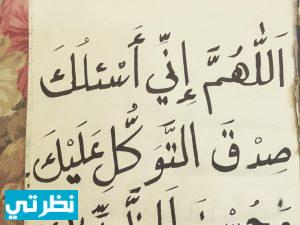 اَللّٰهُمَّ إِنِّي أَسْئَلُكَ
صِدْقَ التَّوَكُّلِ عَلَيْكَ
نظرتي